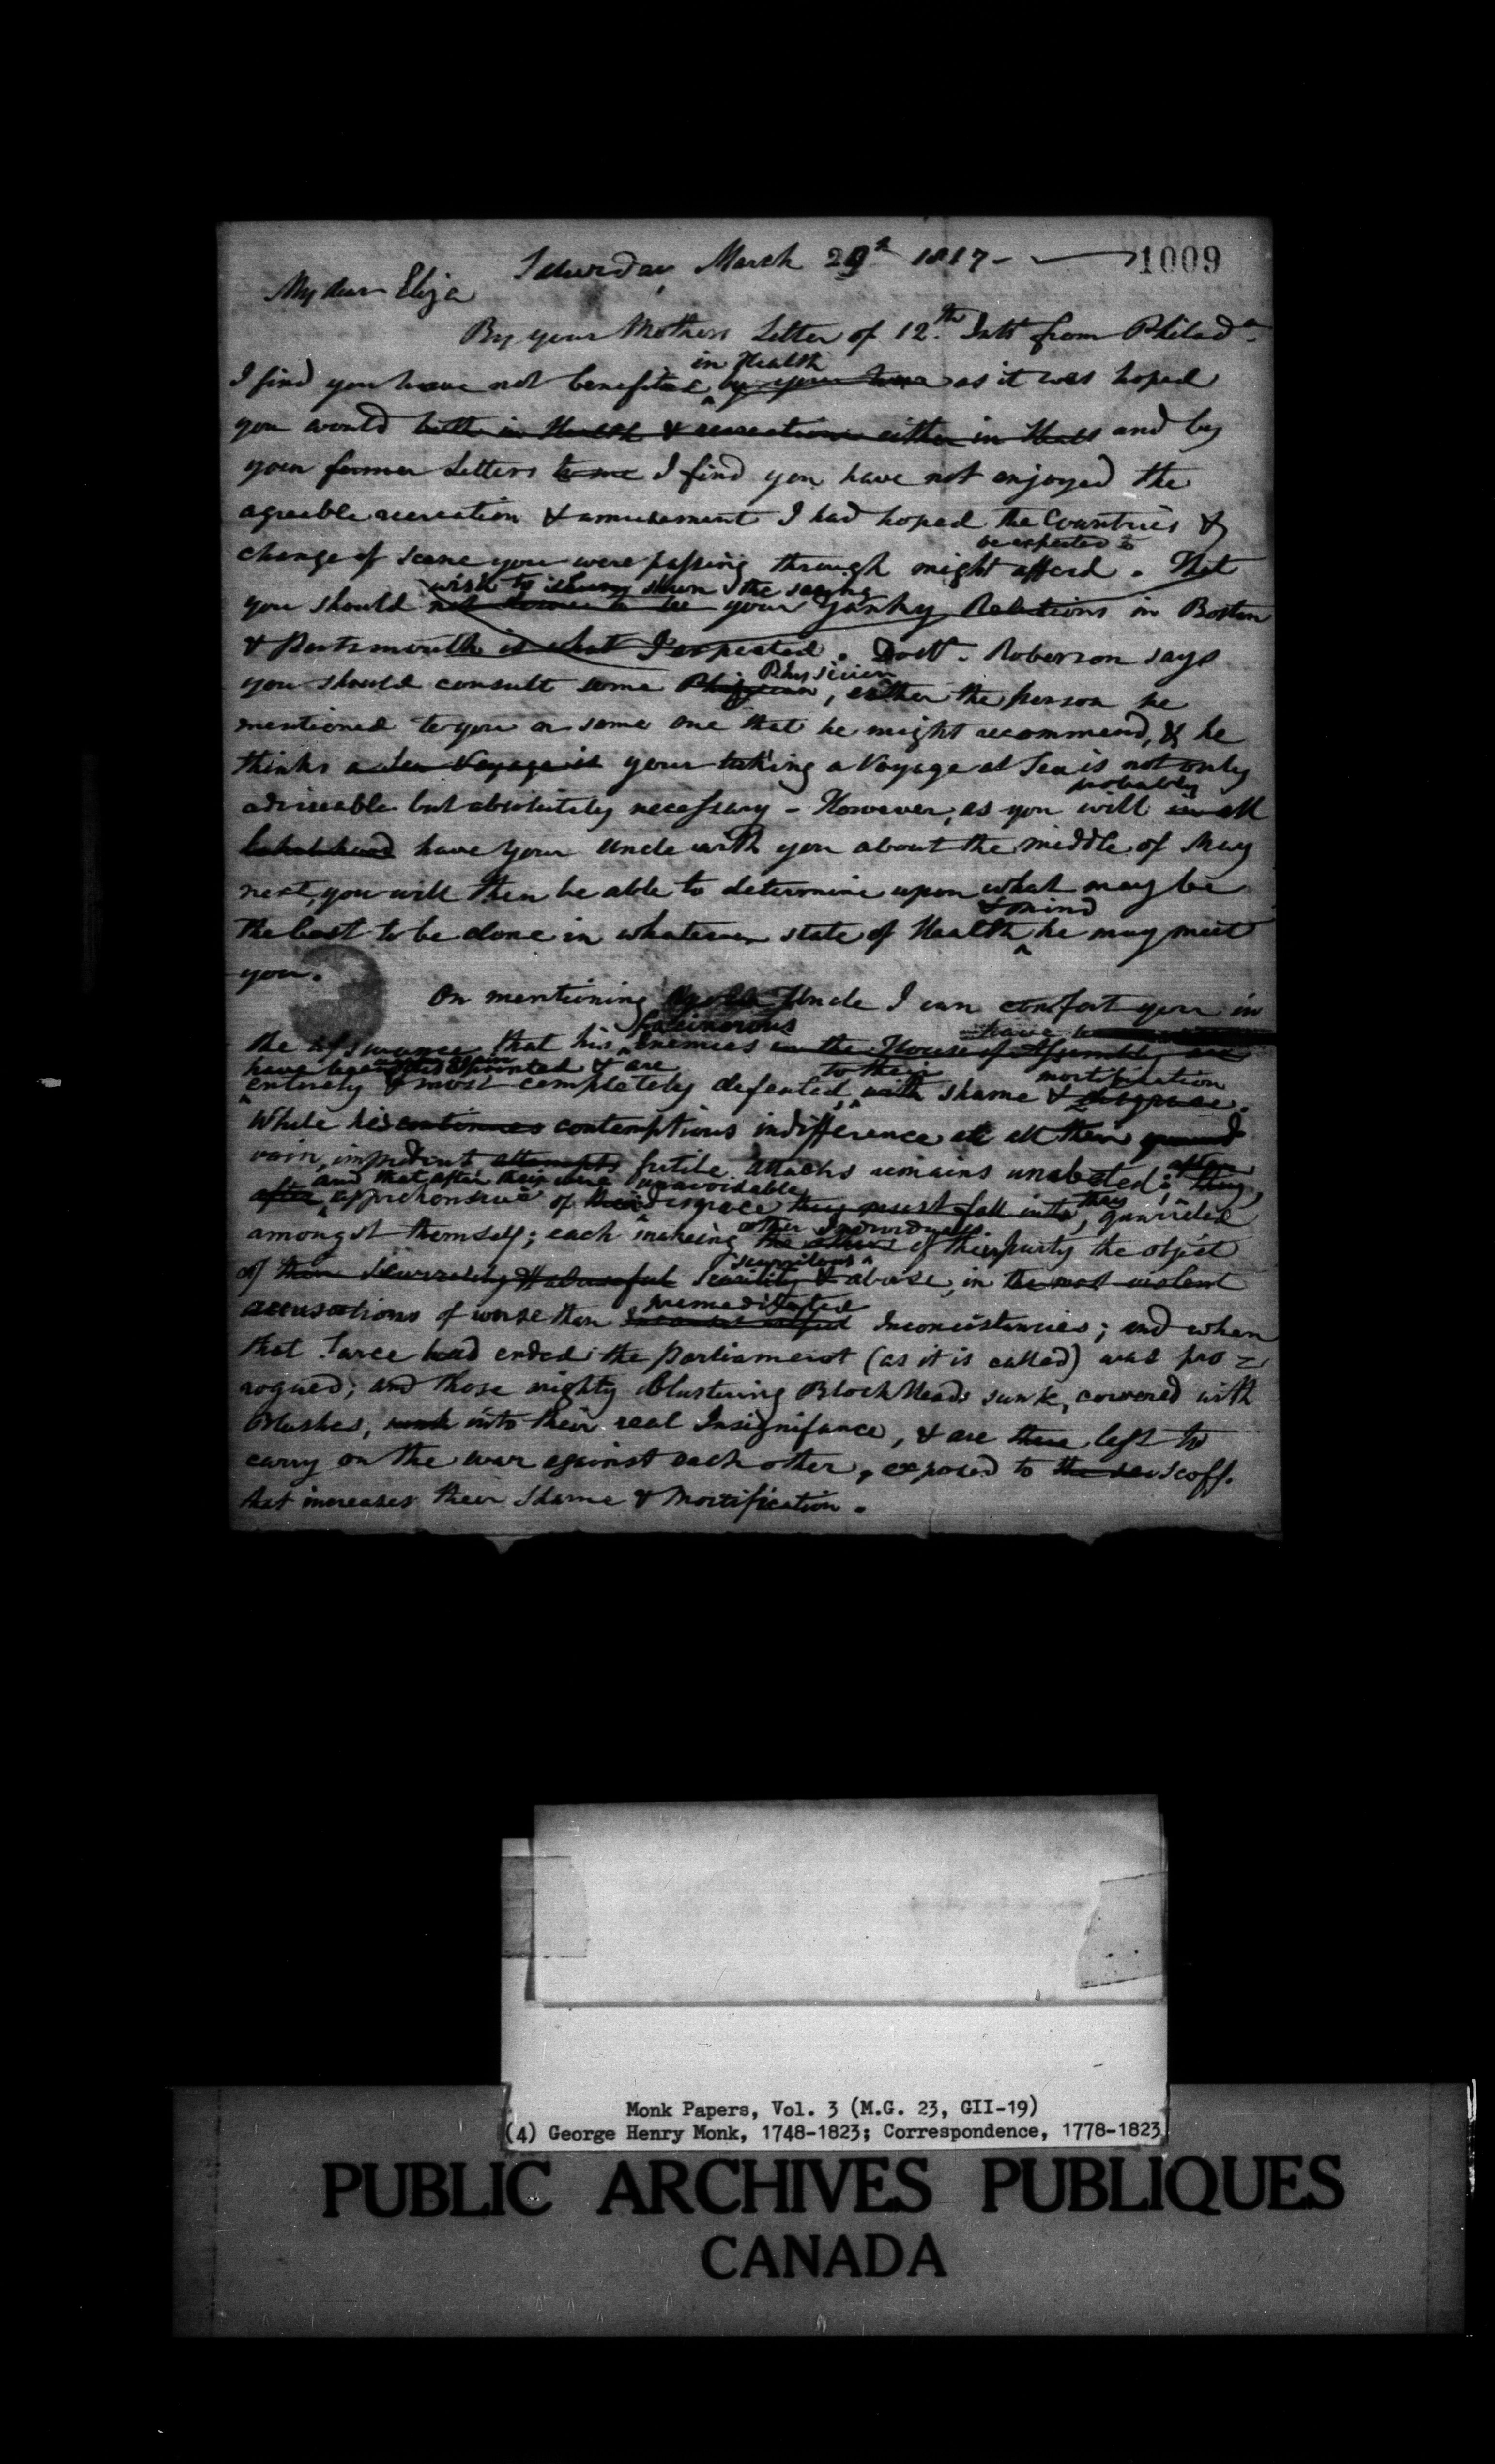 1009
Saturday March 29th 1817 -
My dear Eliza
By your Mothers Letter of 12.th Inst from Philada
in Health
I find you have not benefited by your as it was hoped
you would both in Health & recreation either in and by
your former Letters to me I find you have not enjoyed the
agreable recreation & amusement I had hoped the Countries &
be expected to
change of scene you were passing through might afford. That
wish to shun the seeing
you should not to see your Yanky Relations in Boston
& Portsmouth is what I expected. Doctr. Roberson says
Physician
you should consult some Physician, either the person he
mentioned to you or some one that he might recommend, & he
thinks a Sea Voyage is your taking a Voyage at Sea is not only
probably
adviseable but absolutely necessary - However, as you will in all
likelihood have your Uncle with you about the middle of May
next, you will then be able to determine upon what may be
& mind
the best to be done in whatever state of Health he may meet
you.
On mentioning your Uncle I can comfort you in
facinorous have
the assurance that his Enemies in the House of Assembly are
have been again disappointed & are to their mortification
entirely & most completely defeated, with shame & disgrace.
While his continues contemptious indifference at all their
vain, impudent attempts futile attacks remains unabated; after they,
and that after their unavoidable they
after apprehensive of their disgrace they must fall into, quarreled
other Individuals
amongst themself; each making the others of their party the object
scurrilous
of their scurrility & abuse, in the most violent
premeditated
accusations of worse than Inconsistancies; and when
that farce had ended the Parliament (as it is called) was pro=
rogued; and those mighty blustering Block Heads sunk, covered with
blushes, sunk into their real Insignifance, & are there left to
carry on the war against each other, exposed to the scoff.
that increases their Shame & Mortification.
Monk Papers, Vol. 3 (M.G. 23, GII-19)
(4) George Henry Monk, 1748-1823; Correspondence, 1778-1823
PUBLIC ARCHIVES PUBLIQUES
CANADA